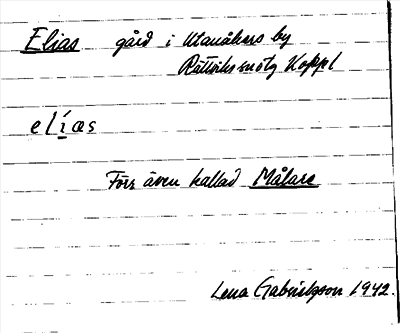 Elias gård i Utanåkers by
Rättviks snstg Koppl
elíæs
Förr även kallad Målare
Lena Gabrielsson 1942.